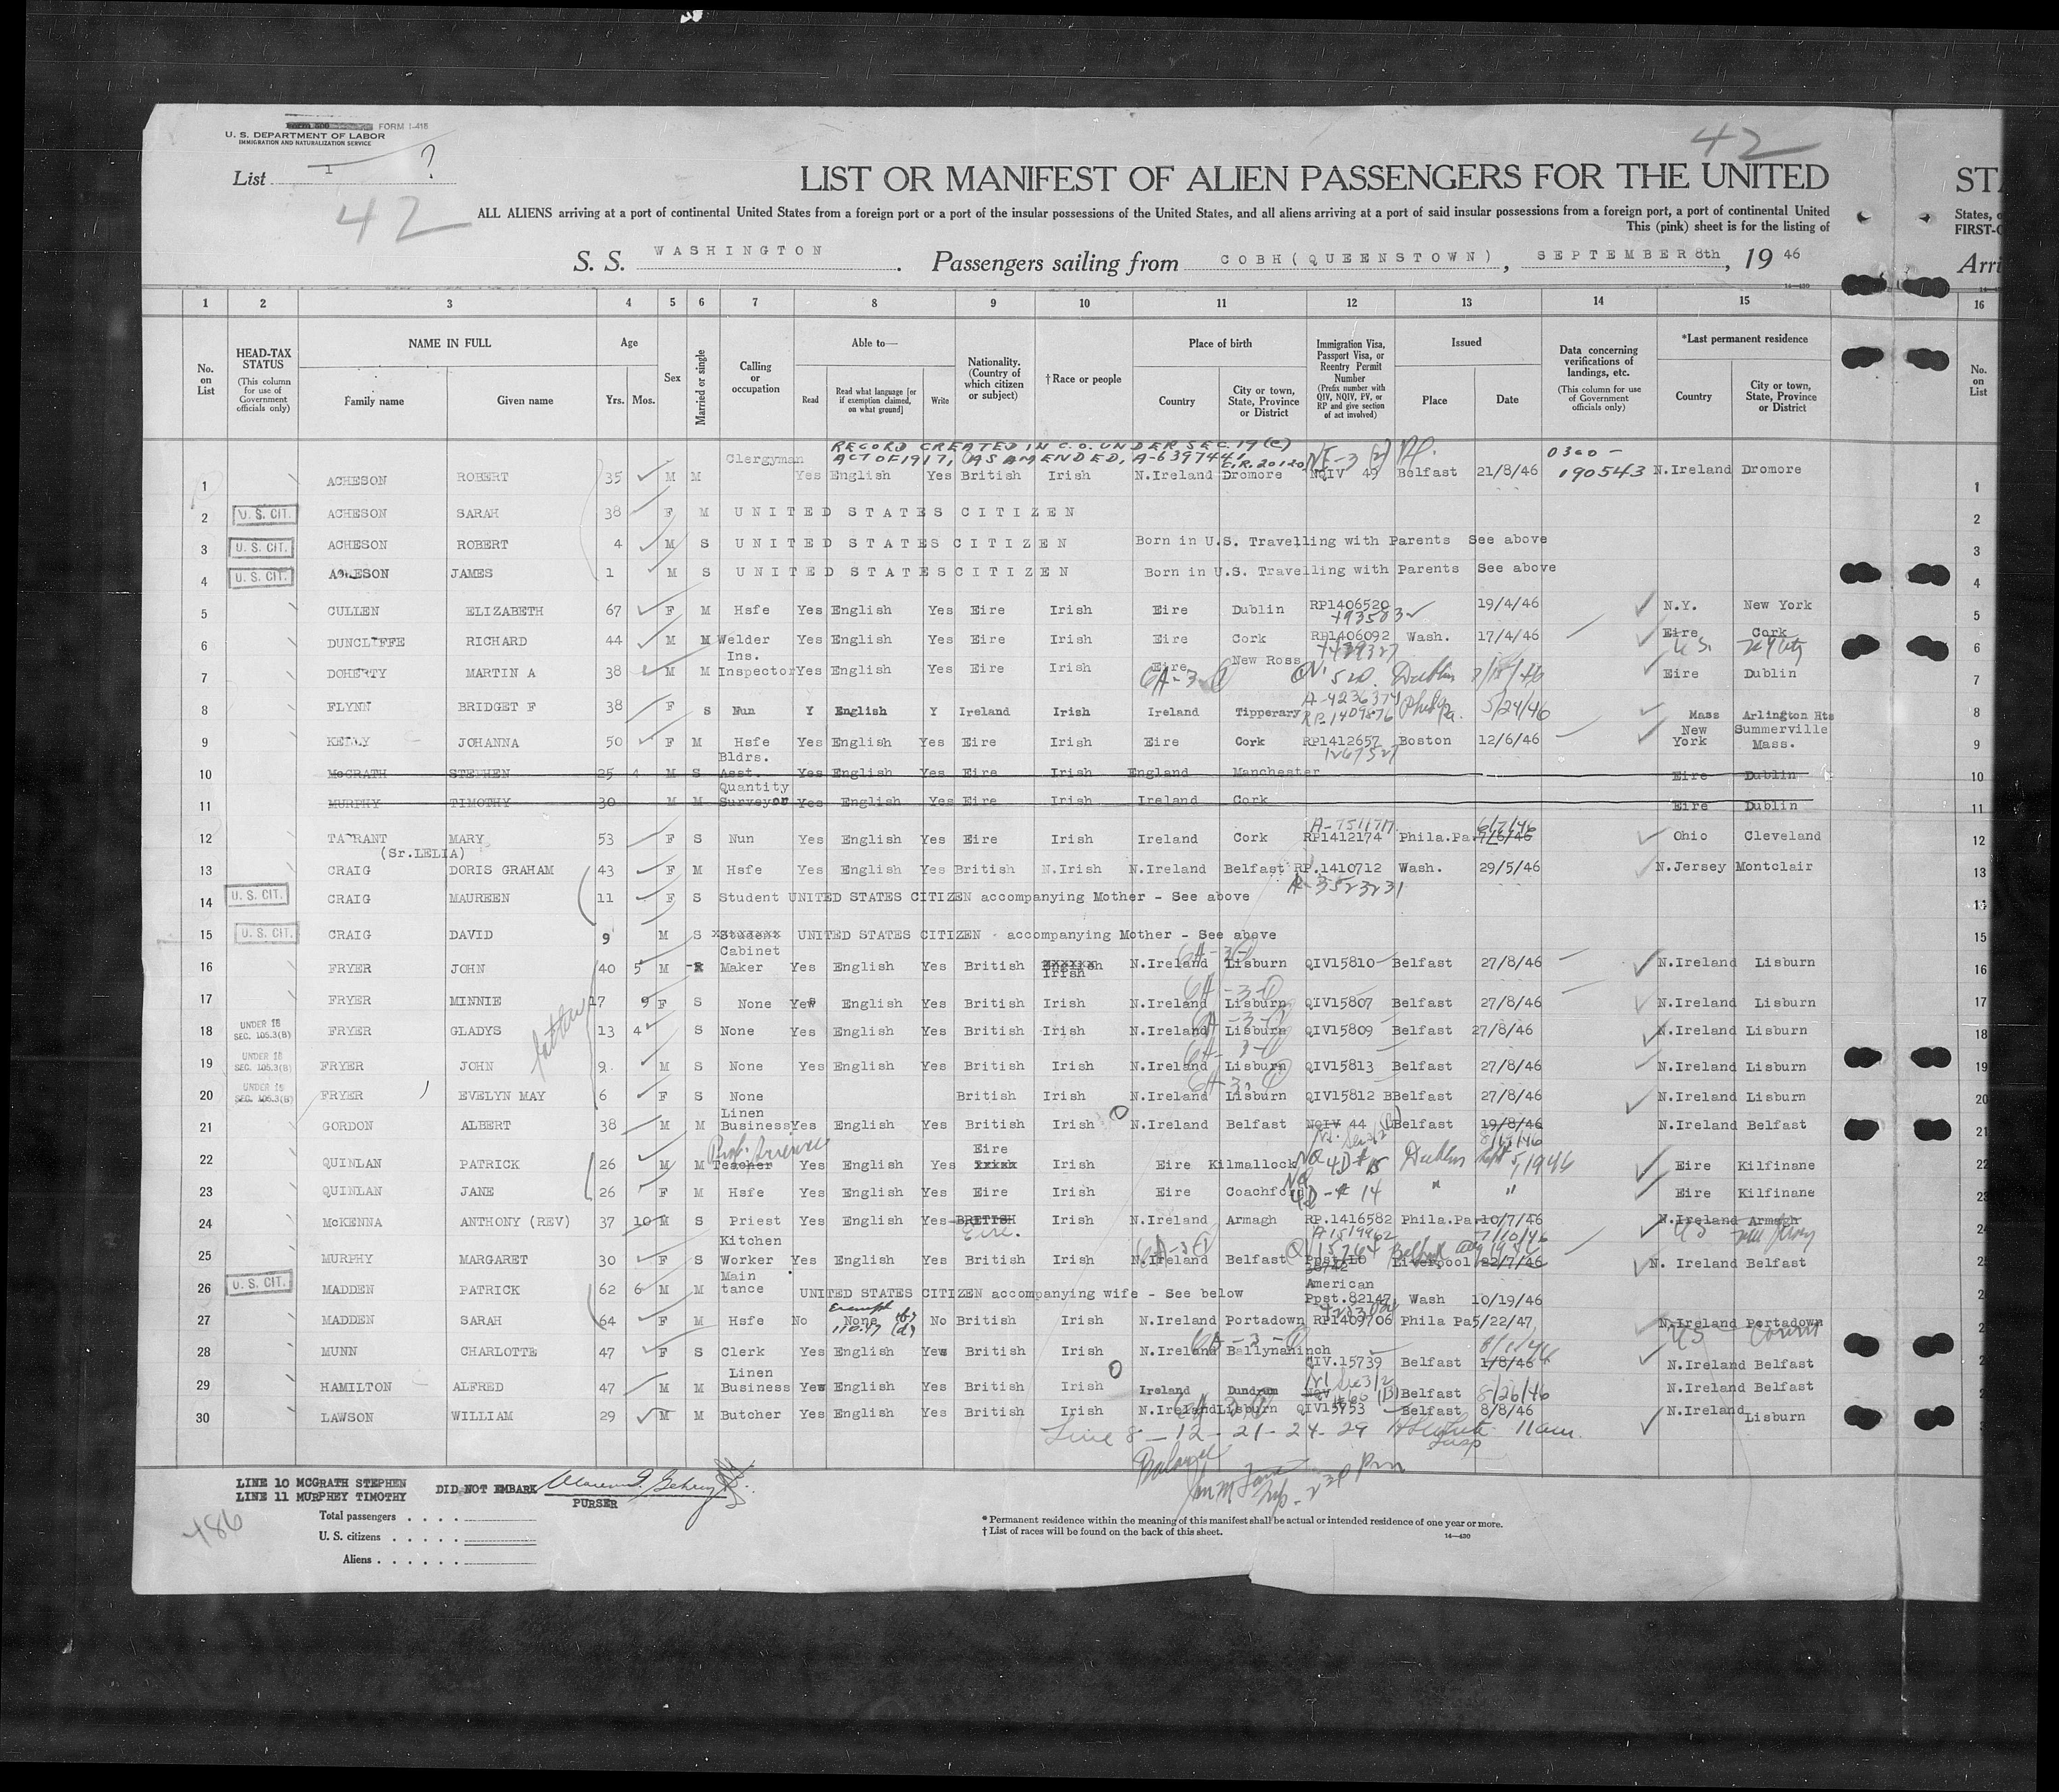 FORM I-415
U. S. DEPARTMENT OF LABOR
IMMIGRATION AND NATURALIZATION SERVICE
List 1 ?
42
42
LIST OR MANIFEST OF ALIEN PASSENGERS FOR THE UNITED
STA
ALL ALIENS arriving at a port of continental United States from a foreign port or a port of the insular possessions of the United States, and all aliens arriving at a port of said insular possessions from a foreign port, a port of continental United
States, o
This (pink) sheet is for the listing of
FIRST-C
S. S. WASHINGTON. Passengers sailing from COBH (QUEENSTOWN), SEPTEMBER 8th, 19 46
Arri
1 2 3 4 5 6 7 8 9 10 11 12 13 14 15 16
No. on List
HEAD-TAX STATUS (This column for use of Government officials only)
NAME IN FULL Family name Given name
Age Yrs. Mos.
Sex
Married or single
Calling or occupation
Able to— Read Read what language [or if exemption claimed, on what ground] Write
Nationality. (Country of which citizen or subject)
† Race or people
Place of birth Country City or town, State, Province or District
Immigration Visa, Passport Visa, or Reentry Permit Number (Prefix number with QIV, NQIV, PV, or RP and give section of act involved)
Issued Place Date
Data concerning verifications of landings, etc. (This column for use of Government officials only)
*Last permanent residence Country City or town, State, Province or District
No. on List
RECORD CREATED IN C.O. UNDER SEC. 19 (c)
ACT OF 1917, (AS AMENDED, A-6397441
0300 - 190543
1 ACHESON ROBERT 35 M M Clergyman Yes English Yes British Irish N.Ireland Dromore NQIV 49 Belfast 21/8/46 N.Ireland Dromore 1
2 U. S. CIT. ACHESON SARAH 38 F M UNITED STATES CITIZEN 2
3 U. S. CIT. ACHESON ROBERT 4 M S UNITED STATES CITIZEN Born in U.S. Travelling with Parents See above 3
4 U. S. CIT. ACHESON JAMES 1 M S UNITED STATES CITIZEN Born in U.S. Travelling with Parents See above 4
5 CULLEN ELIZABETH 67 F M Hsfe Yes English Yes Eire Irish Eire Dublin RP1406520 19/4/46 N.Y. New York 5
6 DUNCLIFFE RICHARD 44 M M Welder Yes English Yes Eire Irish Eire Cork RP1406092 Wash. 17/4/46 Eire Cork 6
7 DOHERTY MARTIN A 38 M M Ins. Inspector Yes English Yes Eire Irish Eire New Ross 6A-3 QV. 520. Dublin Eire Dublin 7
8 FLYNN BRIDGET F 38 F S Nun Y English Y Ireland Irish Ireland Tipperary A-4236374 RP-1409876 Phila Pa. 5/24/46 Mass Arlington Hts 8
9 KELLY JOHANNA 50 F M Hsfe Yes English Yes Eire Irish Eire Cork RP1412657 Boston 12/6/46 New York Summerville Mass. 9
10 McGRATH STEPHEN 25 4 M S Bldrs. Asst. Yes English Yes Eire Irish England Manchester Eire Dublin 10
11 MURPHY TIMOTHY 30 M M Quantity Surveyor Yes English Yes Eire Irish Ireland Cork Eire Dublin 11
12 TARRANT MARY 53 F S Nun Yes English Yes Eire Irish Ireland Cork RP1412174 Phila.Pa. 7/6/46 6/7/46 Ohio Cleveland 12
(Sr.LELIA)
13 CRAIG DORIS GRAHAM 43 F M Hsfe Yes English Yes British N.Irish N.Ireland Belfast RP.1410712 Wash. 29/5/46 N.Jersey Montclair 13
A-3523231
14 U. S. CIT. CRAIG MAUREEN 11 F S Student UNITED STATES CITIZEN accompanying Mother - See above 14
15 U. S. CIT. CRAIG DAVID 9 M S UNITED STATES CITIZEN - accompanying Mother - See above 15
16 FRYER JOHN 40 5 M Cabinet Maker Yes English Yes British Irish N.Ireland Lisburn QIV15810 Belfast 27/8/46 N.Ireland Lisburn 16
17 FRYER MINNIE 17 9 F S None Yes English Yes British Irish N.Ireland Lisburn QIV15807 Belfast 27/8/46 N.Ireland Lisburn 17
18 UNDER 16 SEC. 105.3(B) FRYER GLADYS 13 4 S None Yes English Yes British Irish N.Ireland Lisburn QIV15809 Belfast 27/8/46 N.Ireland Lisburn 18
19 UNDER 16 SEC. 105.3(B) FRYER JOHN 9 M S None Yes English Yes British Irish N.Ireland Lisburn QIV15813 Belfast 27/8/46 N.Ireland Lisburn 19
20 UNDER 16 SEC. 105.3(B) FRYER EVELYN MAY 6 F S None British Irish N.Ireland Lisburn QIV15812 BBelfast 27/8/46 N.Ireland Lisburn 20
21 GORDON ALBERT 38 M M Linen Business Yes English Yes British Irish N.Ireland Belfast NQIV 44 Belfast 19/8/46 N.Ireland Belfast 21
22 QUINLAN PATRICK 26 M M Teacher Yes English Yes Eire Irish Eire Kilmallock Dublin Sept 5, 1946 Eire Kilfinane 22
23 QUINLAN JANE 26 F M Hsfe Yes English Yes Eire Irish Eire Coachford 4D-# 14 " " Eire Kilfinane 23
24 McKENNA ANTHONY (REV) 37 10 M S Priest Yes English Yes BRITISH Eire. Irish N.Ireland Armagh RP.1416582 Phila.Pa. 10/7/46 7/10/46 N.Ireland Armagh 24
25 MURPHY MARGARET 30 F S Kitchen Worker Yes English Yes British Irish N.Ireland Belfast Liverpool 22/7/46 N. Ireland Belfast 25
26 U. S. CIT. MADDEN PATRICK 62 6 M M Main tance UNITED STATES CITIZEN accompanying wife - See below American Ppst.82147 Wash 10/19/46
27 MADDEN SARAH 64 F M Hsfe No None No British Irish N.Ireland Portadown RP1409706 Phila Pa 5/22/47 N.Ireland Portadown
28 MUNN CHARLOTTE 47 F S Clerk Yes English Yes British Irish N.Ireland Ballynahinch QIV.15739 Belfast 1/8/46 N.Ireland Belfast
29 HAMILTON ALFRED 47 M M Linen Business Yes English Yes British Irish Ireland Dundrum Belfast 8/26/46 N.Ireland Belfast
30 LAWSON WILLIAM 29 M M Butcher Yes English Yes British Irish N.Ireland Lisburn QIV15753 Belfast 8/8/46 N.Ireland Lisburn
Line 8 - 12 - 21 - 24 - 29 11am.
LINE 10 MCGRATH STEPHEN
LINE 11 MURPHEY TIMOTHY DID NOT EMBARK
PURSER
486
Total passengers
U. S. citizens
Aliens
* Permanent residence within the meaning of this manifest shall be actual or intended residence of one year or more.
† List of races will be found on the back of this sheet.
14—430